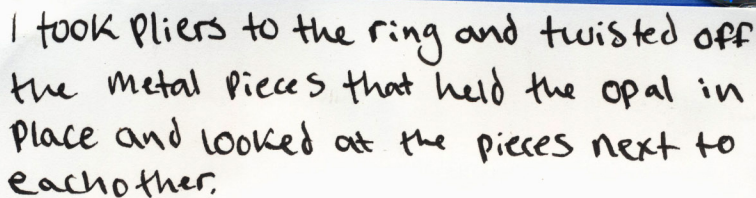 I took pliers to the ring and twisted off
the metal pieces that held the opal in
place and looked at the pieces next to
eachother.